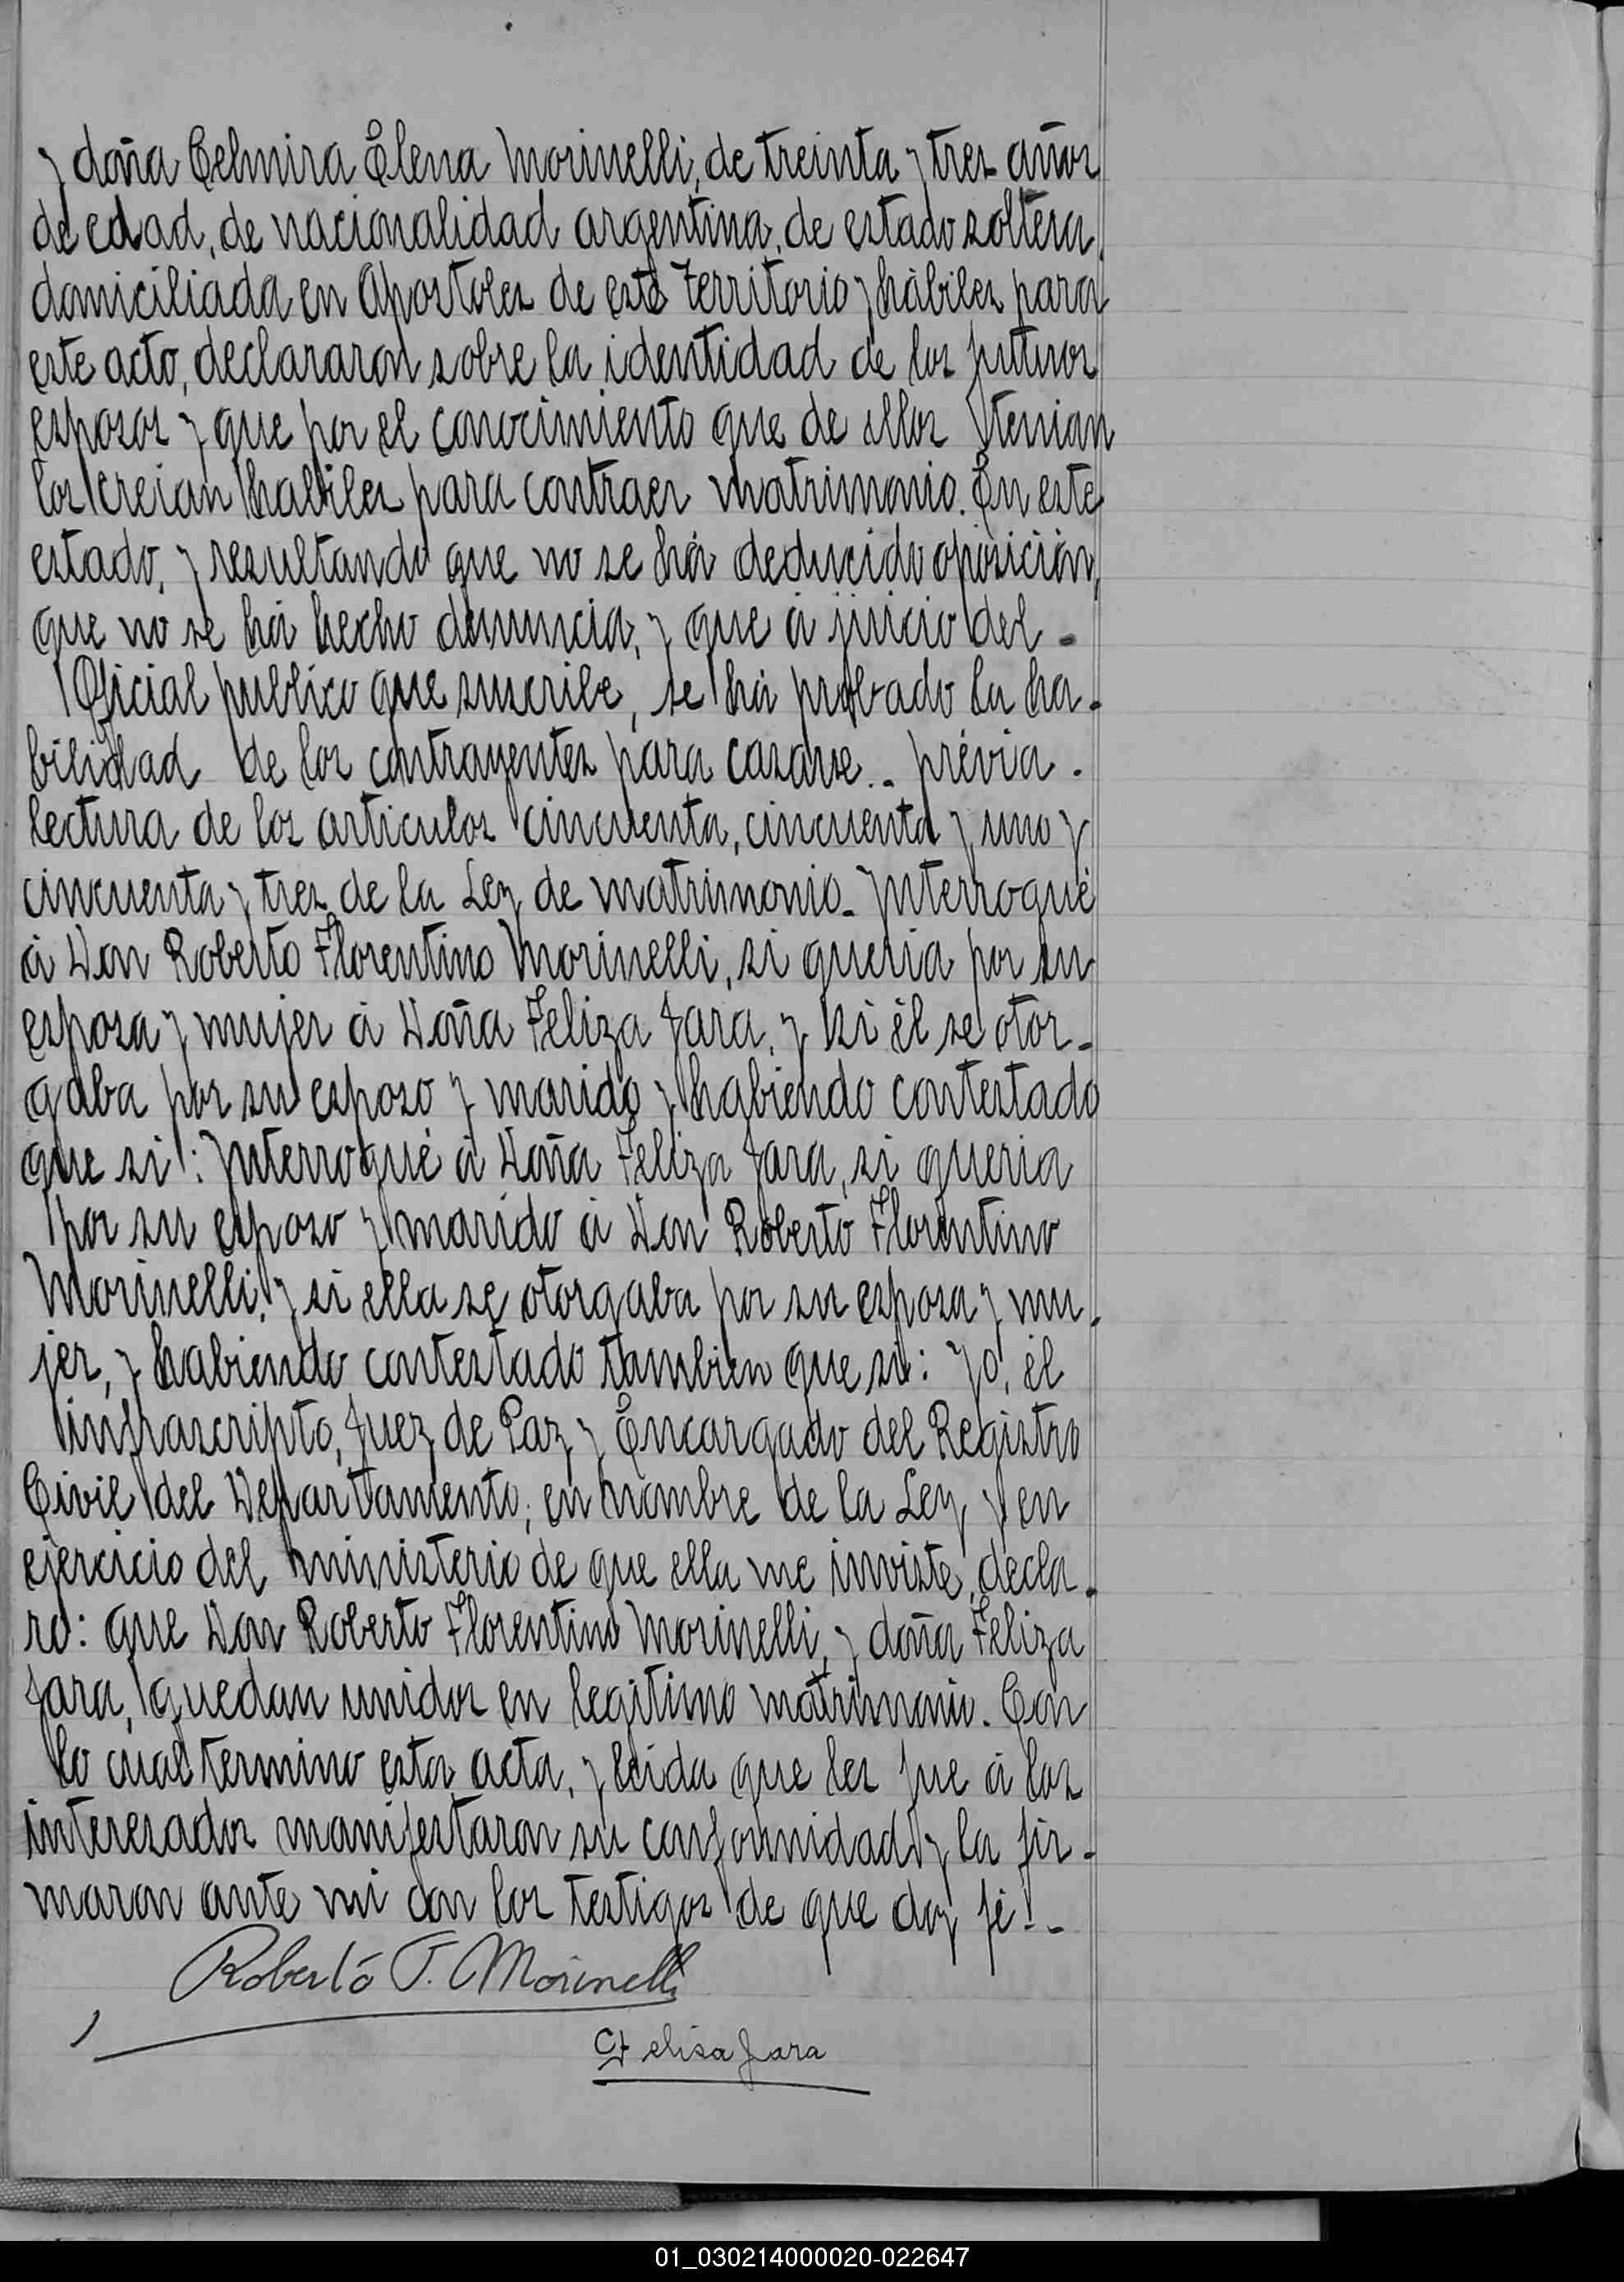 y doña Celmira Elena Morinelli, de treinta y tres años
de edad, de nacionalidad argentina, de estado soltera,
domiciliada en Apostoles de este territorio y hábiles para
este acto, declararon sobre la identidad de los futuros
esposos y que por el conocimiento que de ellos tenian
los creian habiles para contraer matrimonio. En este
estado, y resultando que no se há deducido oposición,
que no se há hecho denuncia, y que á juicio del -
Oficial publico que suscribe, se há probado la ha-
bilidad de los contrayentes para casarse.- prévia -
lectura de los articulos cincuenta, cincuenta y uno y
cincuenta y tres de la Ley de matrimonio. Ynterroqué
á Don Roberto Florentino Morinelli, si queria por su
esposa y mujer á Doña Feliza Jara, y si él se otor-
gaba por su esposo y marido y habiendo contestado
que si: Ynterroqué á Doña Feliza Jara, si queria
por su esposo y marido á Don Roberto Florentino
Morinelli, y si ella se otorgaba por su esposa y mu-
jer, y habiendo contestado tambien que si: Yo, él
infrascripto, Juez de Paz y Encargado del Registro
Civil del Departamento, en nombre de la Ley y en
ejercicio del ministerio de que ella me inviste, decla-
ro: que Don Roberto Florentino Morinelli, y doña Feliza
Jara, quedan unidos en legitimo matrimonio. Con
lo cual termino esta acta, y leida que les fue á los
interesados manifestaron su conformidad y la fir-
maron ante mi con los testigos de que doy fé!-
Roberto F. Morinelli
Felisa Jara
01_030214000020-022647